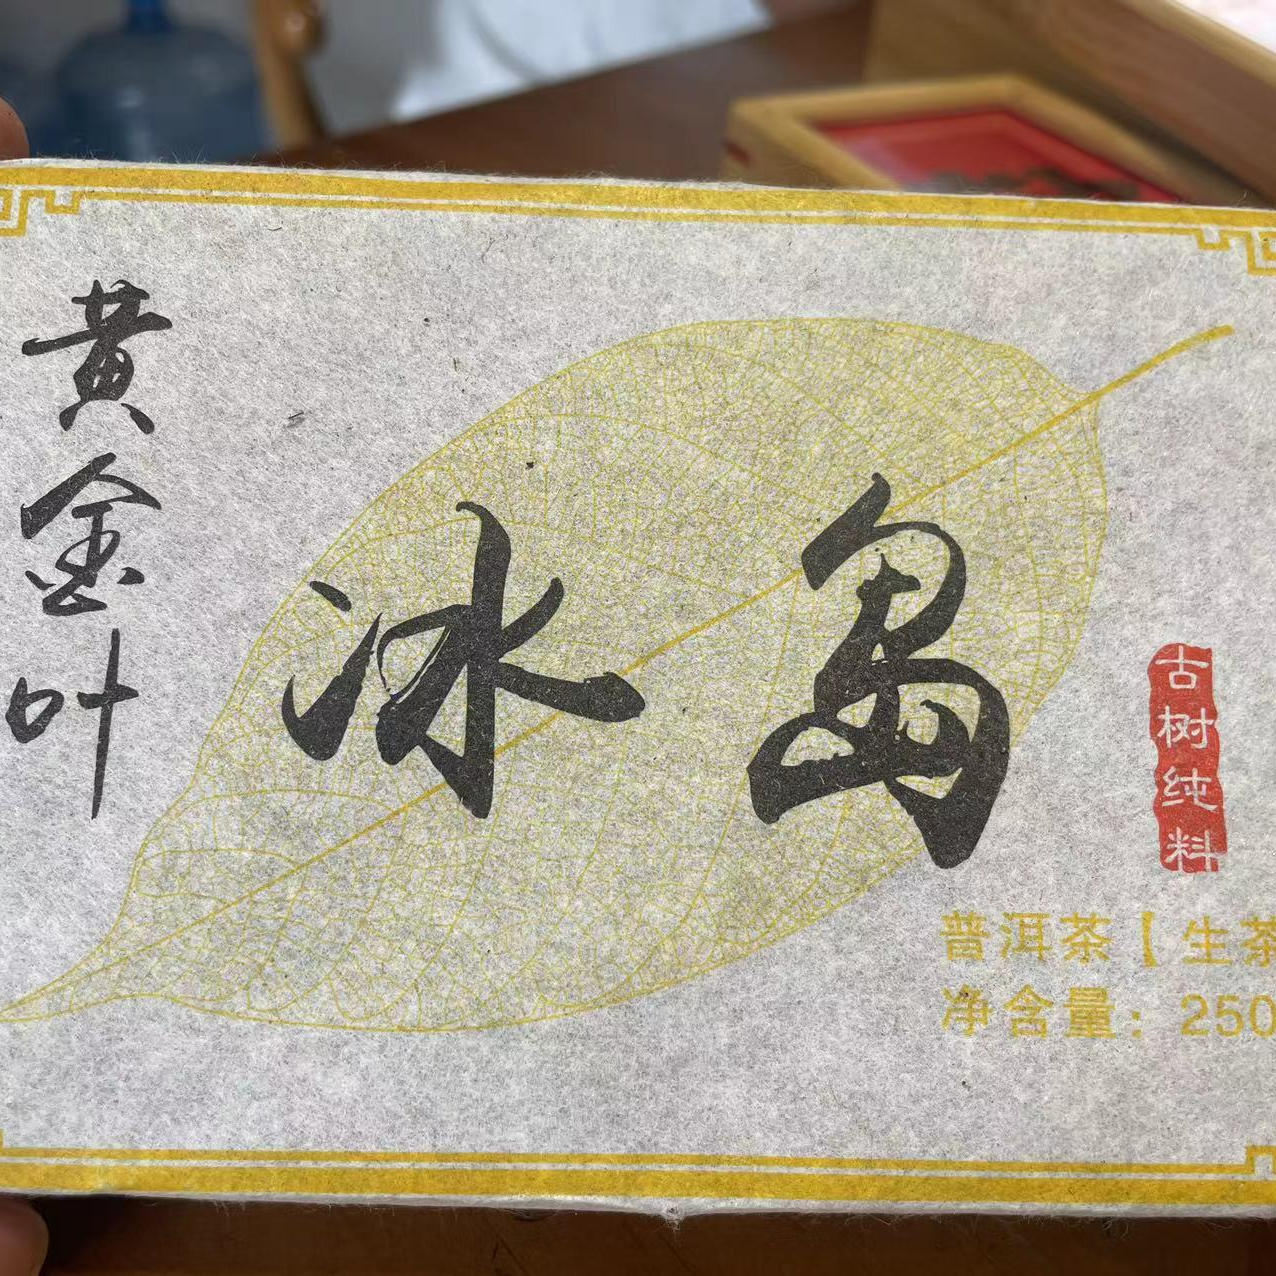 黄金叶
冰岛
古树纯料
普洱茶【生茶
净含量：250